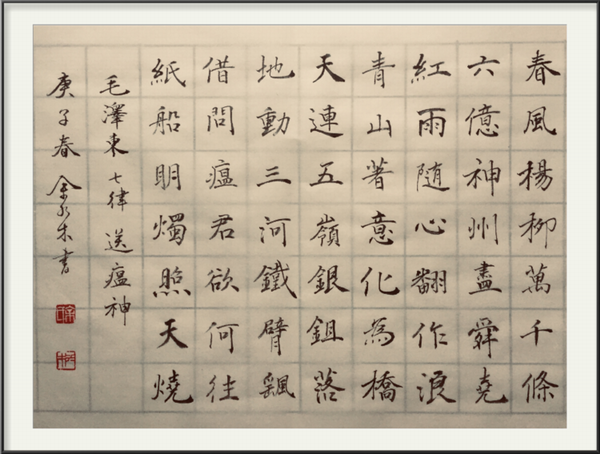 春風楊柳萬千條
六億神州盡舜堯
紅雨随心翻作浪
青山著意化為橋
天連五嶺銀鉏落
地動三河鐵臂
借問瘟君欲何往
紙船明燭照天燒
毛澤東 七律 送瘟神
庚子春 書